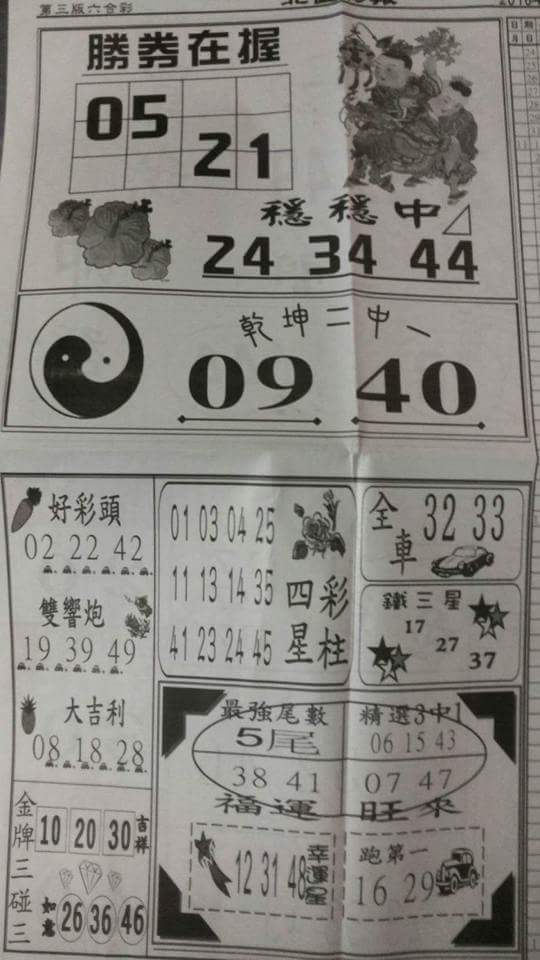 第三版六合彩
勝券在握
05
21
穩穩中
24 34 44
乾坤二中一
09 40
好彩頭
02 22 42
雙響炮
19 39 49
大吉利
08 18 28
金牌三碰三
10 20 30
吉祥
如意
26 36 46
01 03 04 25
11 13 14 35
41 23 24 45
四星彩柱
全車
32 33
鐵三星
17
27
37
最強尾數
5尾
38 41
福運
精選3中1
06 15 43
07 47
旺來
12 31 48
幸運星
跑第一
16 29